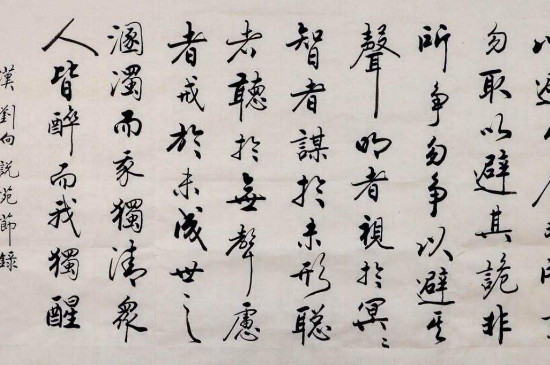 勿取以避其詭非
所爭勿爭以避其
聲明者視於冥〻
智者謀於未形聰
者聽於無聲慮
者戒於未成世之
溷濁而我獨清眾
人皆醉而我獨醒
漢劉向說苑節錄